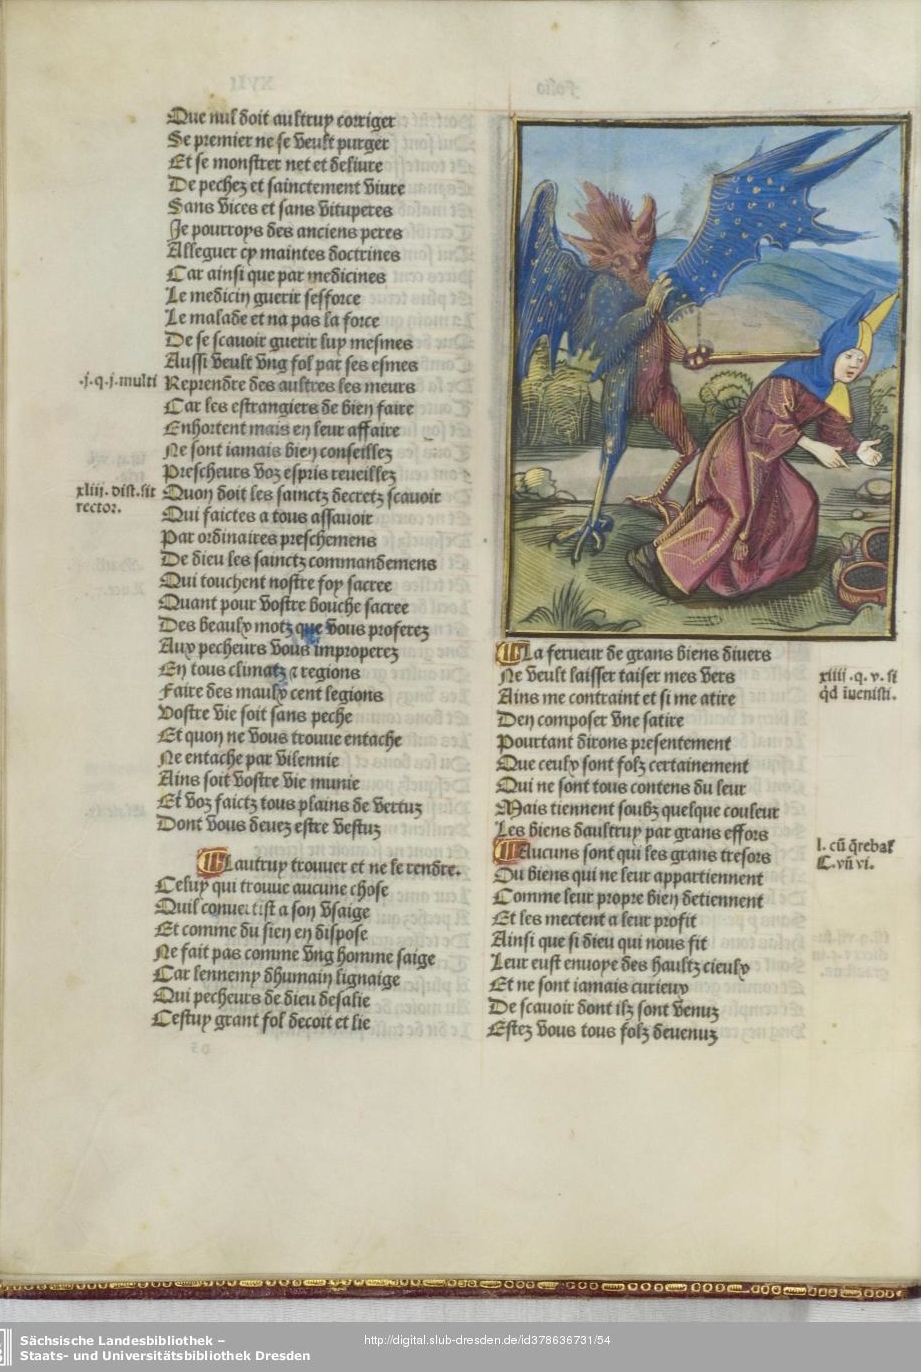 Que nul doit aultruy corriger
Se premier ne se veult purger
Et se monstrer net et deliure
De pechez et sainctement viure
Sans vices et sans vituperes
Je pourroys des anciens peres
Alleguer cy maintes doctrines
Car ainsi que par medicines
Le medicin guerir sefforce
Le malade et na pas la force
De se scauoir guerir luy mesmes
Aussi veult vng fol par ses esmes
.j.q.j.multi
Reprendre des aultres les meurs
Car les estrangiers de bien faire
Enhortent mais en leur affaire
Ne sont iamais bien conseillez
Prescheurs voz espris reueillez
xliij. dist. sit
rector.
Quon doit les sainctz decretz scauoir
Qui faictes a tous assauoir
Par ordinaires preschemens
De dieu les sainctz commandemens
Qui touchent nostre foy sacree
Quant pour vostre bouche sacree
Des beaulx motz que vous proferez
Aux pecheurs vous improperez
En tous climatz ⁊ regions
Faire des maulx cent legions
Vostre vie soit sans peche
Et quon ne vous trouue entache
Ne entache par vilennie
Ains soit vostre vie munie
Et voz faictz tous plains de vertuz
Dont vous deuez estre vestuz
Lautruy trouuer et ne le rendre.
Celuy qui trouue aucune chose
Quil conuertist a son vsaige
Et comme du sien en dispose
Ne fait pas comme vng homme saige
Car lennemy dhumain lignaige
Qui pecheurs de dieu deslie
Cestuy grant fol decoit et lie
La ferueur de grans biens diuers
Ne veult laisser taiser mes vers
Ains me contraint et si me atire
Den composer vne satire
xliii .q. v. si
qd iuenisti.
Pourtant dirons presentement
Que ceulx sont folz certainement
Qui ne sont tous contens du leur
Mais tiennent soubz quelque couleur
Les biens daultruy par grans effors
Aucuns sont qui les grans tresors
l. cū q̄rebat
C. vn̄ vi.
Ou biens qui ne leur appartiennent
Comme leur propre bien detiennent
Et les mectent a leur profit
Ainsi que si dieu qui nous fit
Leur eust enuoye des haultz cieulx
Et ne sont iamais curieux
De scauoir dont ilz sont venuz
Estez vous tous folz deuenuz
Sächsische Landesbibliothek –
Staats- und Universitätsbibliothek Dresden
http://digital.slub-dresden.de/id378636731/54